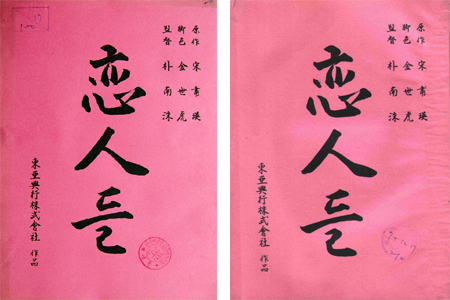 原作 宋書瑛
脚色 金世虎
監督 朴南洙
恋人들
東亜興行株式會社 作品
原作 宋書瑛
脚色 金世虎
監督 朴南洙
恋人들
東亜興行株式會社 作品